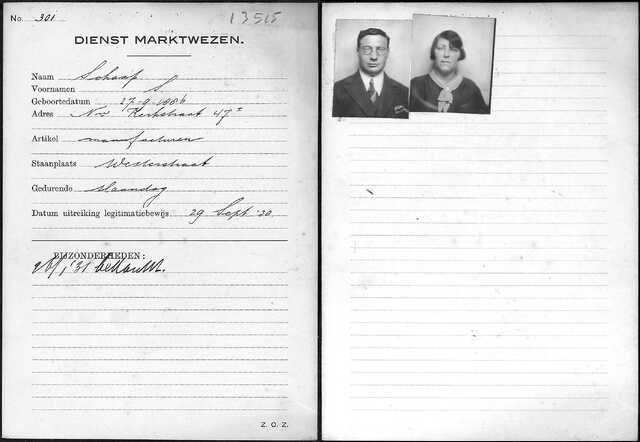 No. 301
13515
DIENST MARKTWEZEN.
Naam Schaap
Voornamen S
Geboortedatum 27-9-1886
Adres Nw Kerkstraat 47 I
Artikel manufacturen
Staanplaats Westerstraat
Gedurende Maandag
Datum uitreiking legitimatiebewijs 29 Sept '30
BIJZONDERHEDEN:
'31
Z. O. Z.